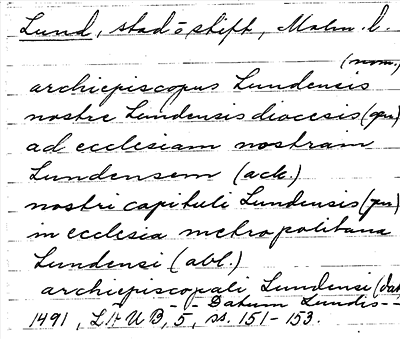 Lund, stad o stift, Malm. l.
(nom.)
archiepiscopus Lundensis
nostre Lundensis diocesis (gen)
ad ecclesiam nostram
Lundensem (ack.)
nostri capituli Lundensis (gen)
in ecclesia metropolitana
Lundensi (abl.)
archiepiscopali Lundensi (dat
- - Datum Lundis - -
1491, LÄUB, 5, ss. 151-153.